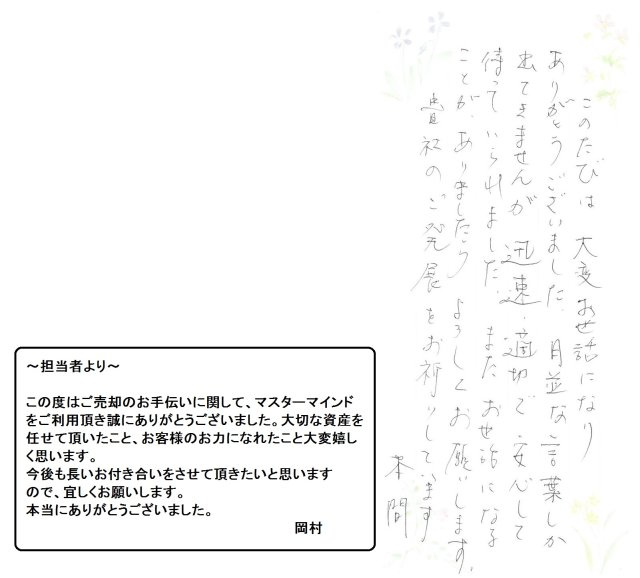 このたびは 大変お世話になり
ありがとうございました。月並な言葉しか
出てきませんが 迅速、適切で 安心して
待っていられました。またお世話になる
ことが、ありましたら よろしくお願いします。
貴社のご発展をお祈りしています
本間
～担当者より～
この度はご売却のお手伝いに関して、マスターマインド
をご利用頂き誠にありがとうございました。大切な資産を
任せて頂いたこと、お客様のお力になれたこと大変嬉し
く思います。
今後も長いお付き合いをさせて頂きたいと思います
ので、宜しくお願いします。
本当にありがとうございました。
岡村